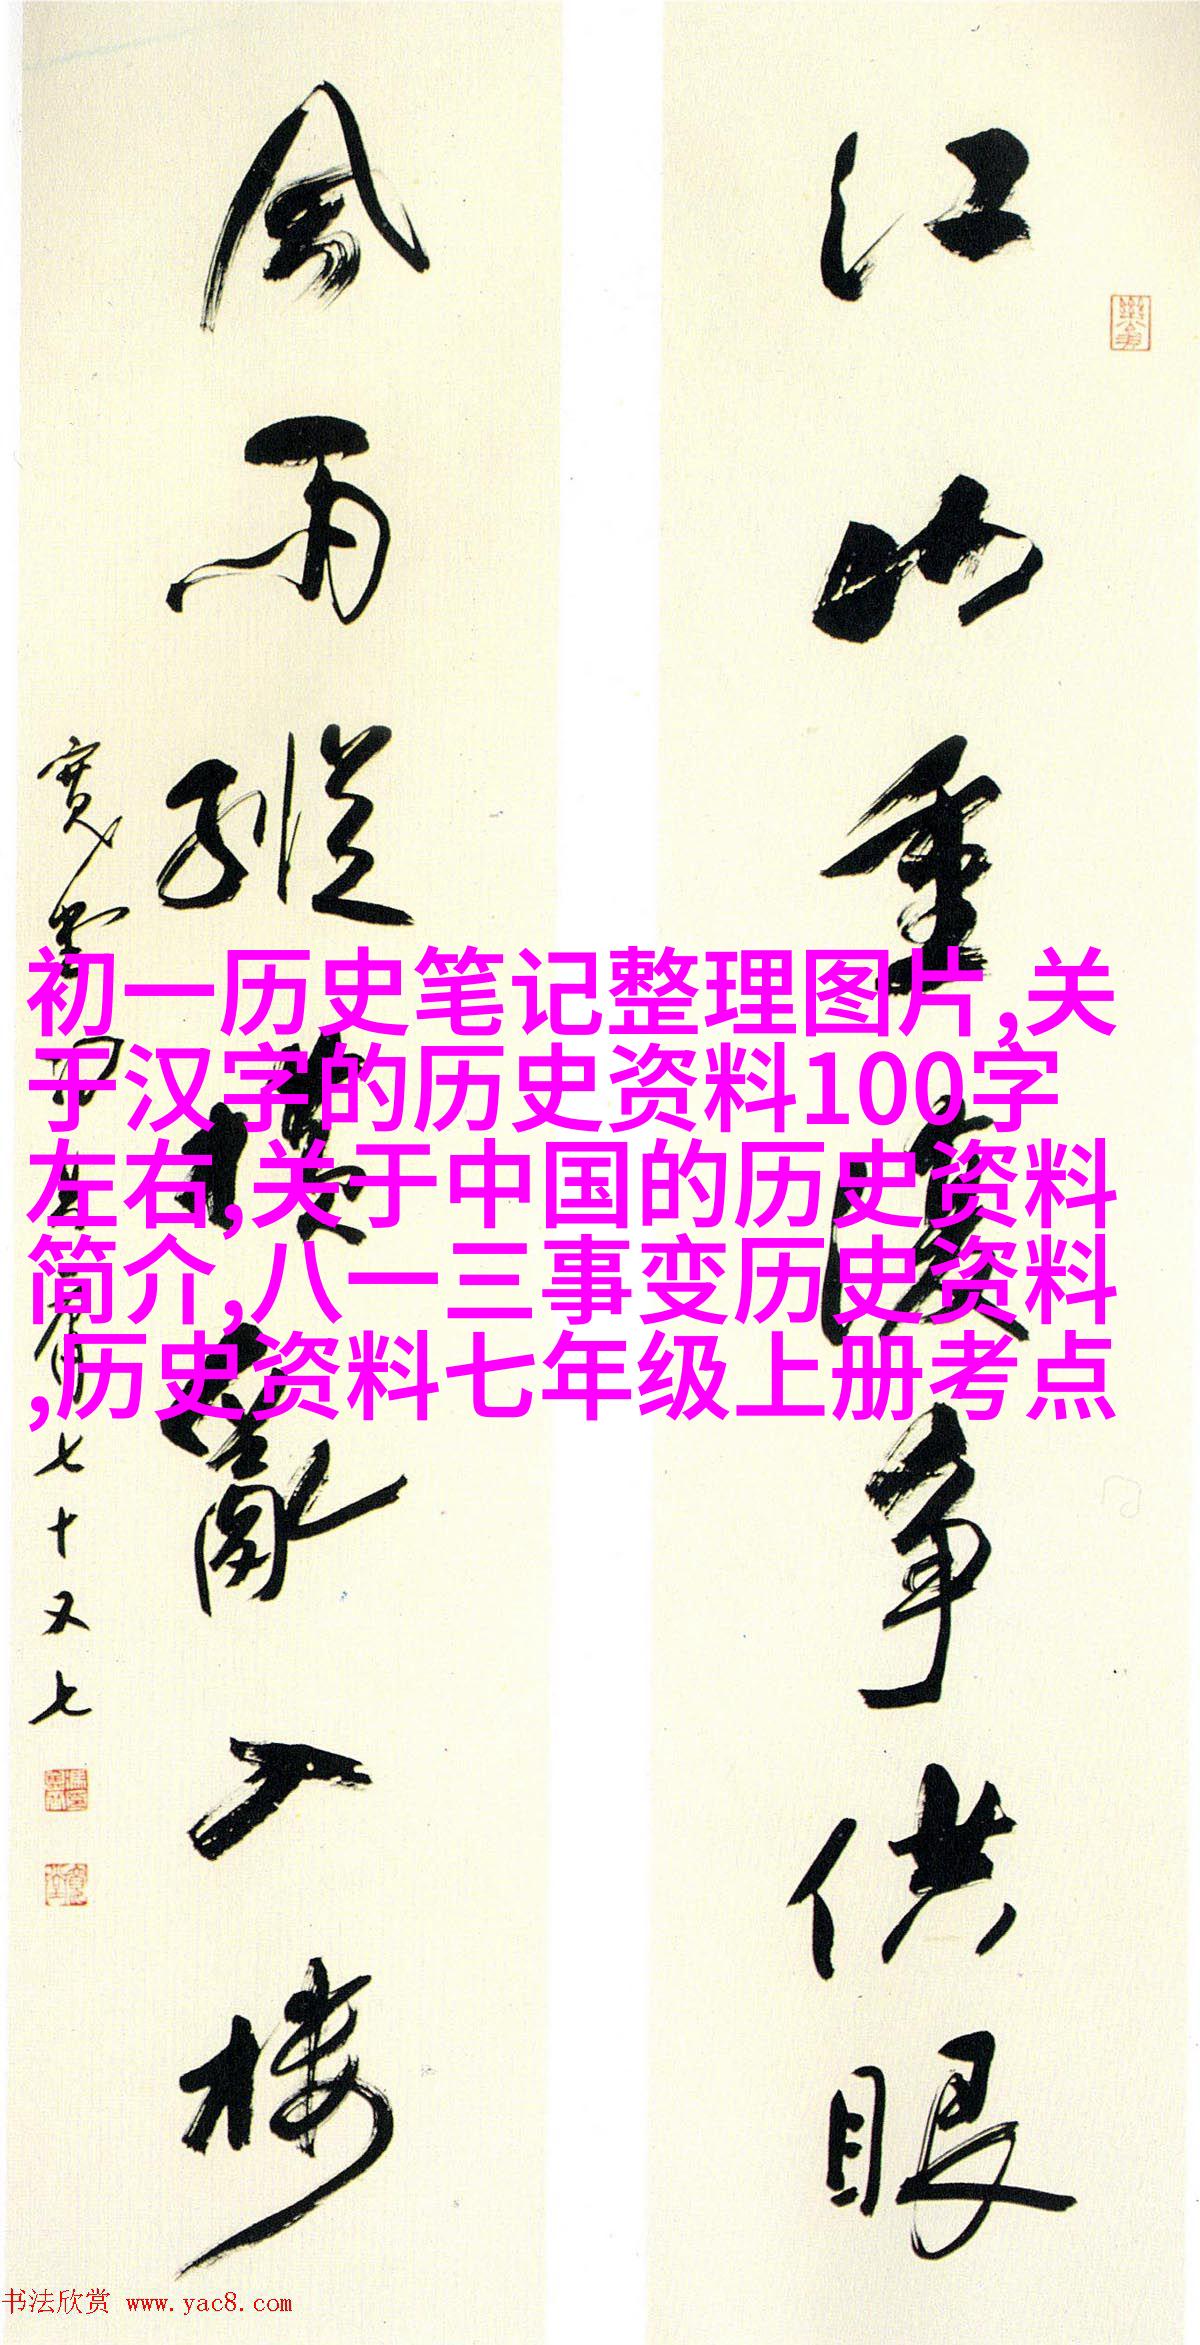 江山重複争供眼
風雨縱橫亂入樓
寬堂馮其庸七十又七
初一历史笔记整理图片,关
于汉字的历史资料100字
左右,关于中国的历史资料
简介,八一三事变历史资料
,历史资料七年级上册考点
书法欣赏 www.yac8.com